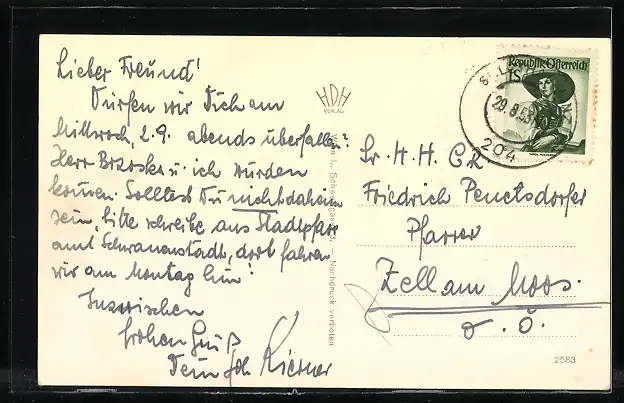 Lieber Freund!
Dürfen wir Dich am
Mittwoch, 2.9. abends überfallen?
Herr Brzoska u. ich würden
kommen. Solltest Du nicht daheim
sein, bitte schreibe ans Stadtpfarr
amt Schwanenstadt, dort fahren
wir am Montag hin!
Inzwischen
frohen Gruß
Dein
HDH
VERLAG
Wien I., Nachdruck verboten
Republik Österreich
1S
29.8.53
204
Sr. H. H.
Friedrich
Pfarrer
Zell am Moos.
O. Ö.
2583